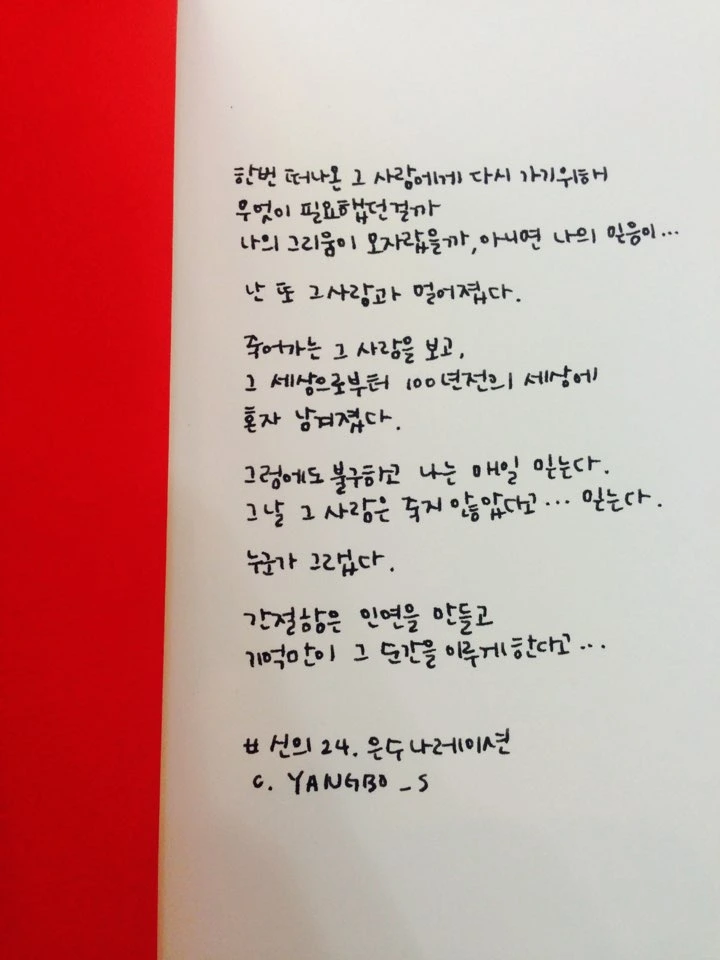 한번 떠나온 그 사람에게 다시 가기위해
무엇이 필요했던걸까
나의 그리움이 모자랐을까, 아니면 나의 믿음이...
난 또 그사람과 멀어졌다.
죽어가는 그 사람을 보고,
그 세상으로부터 100년전의 세상에
혼자 남겨졌다.
그럼에도 불구하고 나는 매일 믿는다.
그날 그 사람은 죽지 않았다고... 믿는다.
누군가 그랬다.
간절함은 인연을 만들고
기억만이 그 순간을 이루게한다고...
신의 24. 은수나레이션
c. YANGBO_S